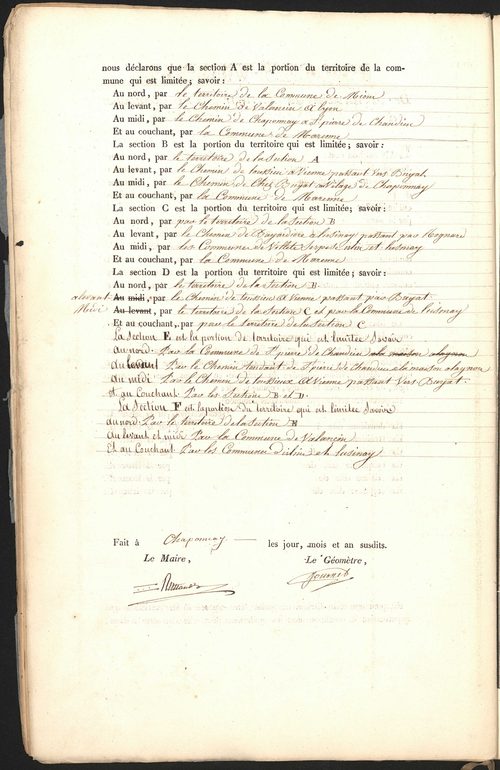 nous déclarons que la section A est la portion du territoire de la com-
mune qui est limitée; savoir :
Au nord, par le territoire de la Commune de Mions
Au levant, par le Chemin de Valencin a Lyon
Au midi, par le Chemin de Chaponnay a St pierre de Chandieu
Et au couchant, par la Commune de Marenne
La section B est la portion du territoire qui est limitée; savoir :
Au nord, par le territoire de la Section A
Au levant, par le Chemin de toussieu a Vienne passant vers Buyat
Au midi, par le Chemin de Chez Buyat au Vilage de Chaponnay
Et au couchant, par la Commune de Marenne
La section C est la portion du territoire qui est limitée; savoir :
Au nord, par le territoire de la Section B
Au levant, par le Chemin de a Luzinay passant par
Au midi, par les Communes de Villette Serpaize et Luzinay
Et au couchant, par la Commune de Marenne
La section D est la portion du territoire qui est limitée; savoir :
Au nord, par le territoire de la Section B
au levant Au midi, par le Chemin de toussieu a Vienne passant par Buyat
Midi Au levant, par le territoire de la Section C et par la Commune de Luzinay
Et au couchant, par par le territoire de la Section C
La Section E est la portion de territoire qui est limitée Savoir
au nord Par la Commune de St pierre de Chandieu a la maison
Au levant Par le Chemin tendant de St pierre de Chandieu a la maison alagnon
au midi Par le Chemin de toussieux a Vienne passant Vers Buyat.
et au Couchant Par les Sections B et D.
La Section F est la portion du territoire qui est limitée Savoire
au nord Par le territoire de la Section B
Au levant et midi Par la Commune de Valançin
Et au Couchant Par les Communes d'illins et Lusinay
Fait à Chaponnay les jour, mois et an susdits.
Le Maire, Le Géomètre,